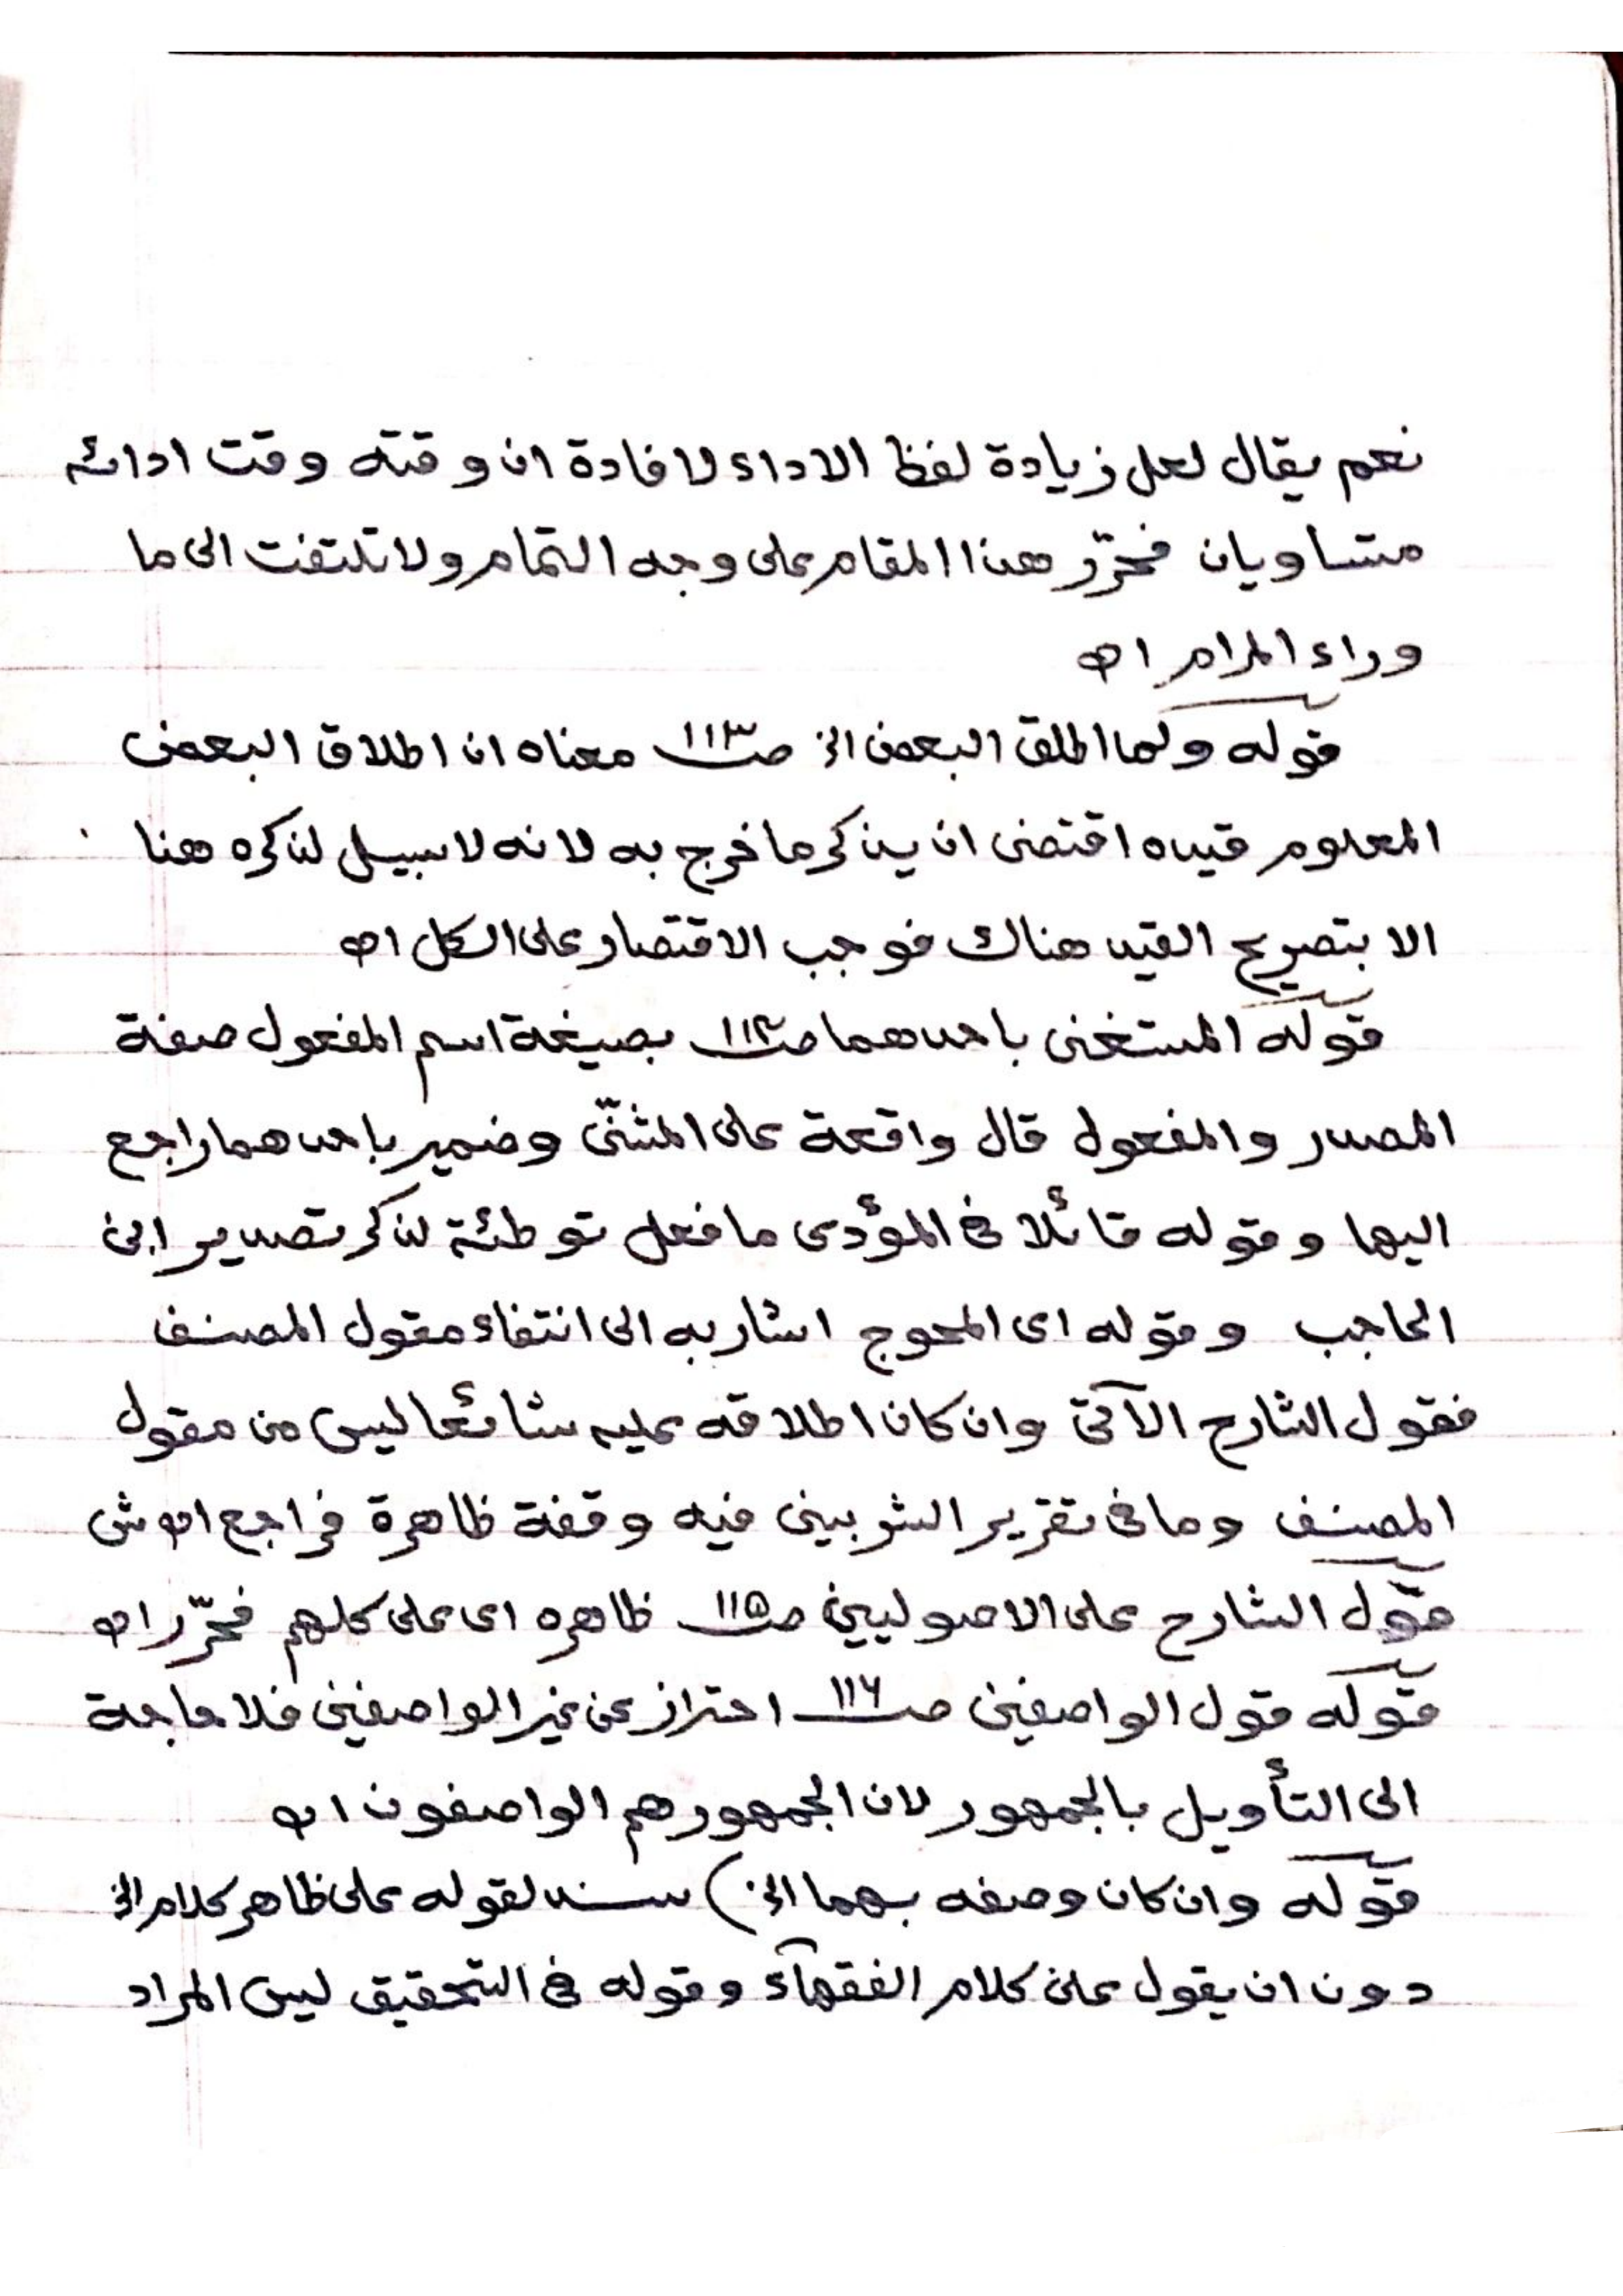 نعم يقال لعل زيادة لفظ الاداء لا فادة ان وقته وقت ادائه
متساويان فحرّر هذا المقام على وجه التمام ولا تلتفت الى ما
وراء المرام اه
قوله ولما اطلق البعض الخ صـ١١٣ معناه ان اطلاق البعض
المعلوم قيده اقتضى ان يذكر ما خرج به لانه لا سبيل لذكره هنا
الا بتصريح القيد هناك فوجب الاقتصار على الكل اه
قوله المستغنى باحدهما صـ١١٤ بصيغة اسم المفعول صفة
المصدر والمفعول قال واقعة على المثنّى وضمير باحدهما راجع
اليها وقوله قائلا فى المؤدى ما فعل توطئة لذكر تصدير ابن
الحاجب وقوله اى المحوج اشار به الى انتفاء مقول المصنف
فقول الشارح الآتى وان كان اطلاقه عليه شائعا ليس من مقول
المصنف وما فى تقرير الشربينى فيه وقفة ظاهرة فراجع اه ش
قول الشارح على الاصوليين صـ١١٥ ظاهره اى على كلهم فحرّر اه
قوله قول الواصفين صـ١١٦ احتراز عن غير الواصفين فلا حاجة
الى التأويل بالجمهور لان الجمهور هم الواصفون اه
قوله وان كان وصفه بهما الخ) سند لقوله على ظاهر كلام الخ
دون ان يقول على كلام الفقهآء وقوله فى التحقيق ليس المراد